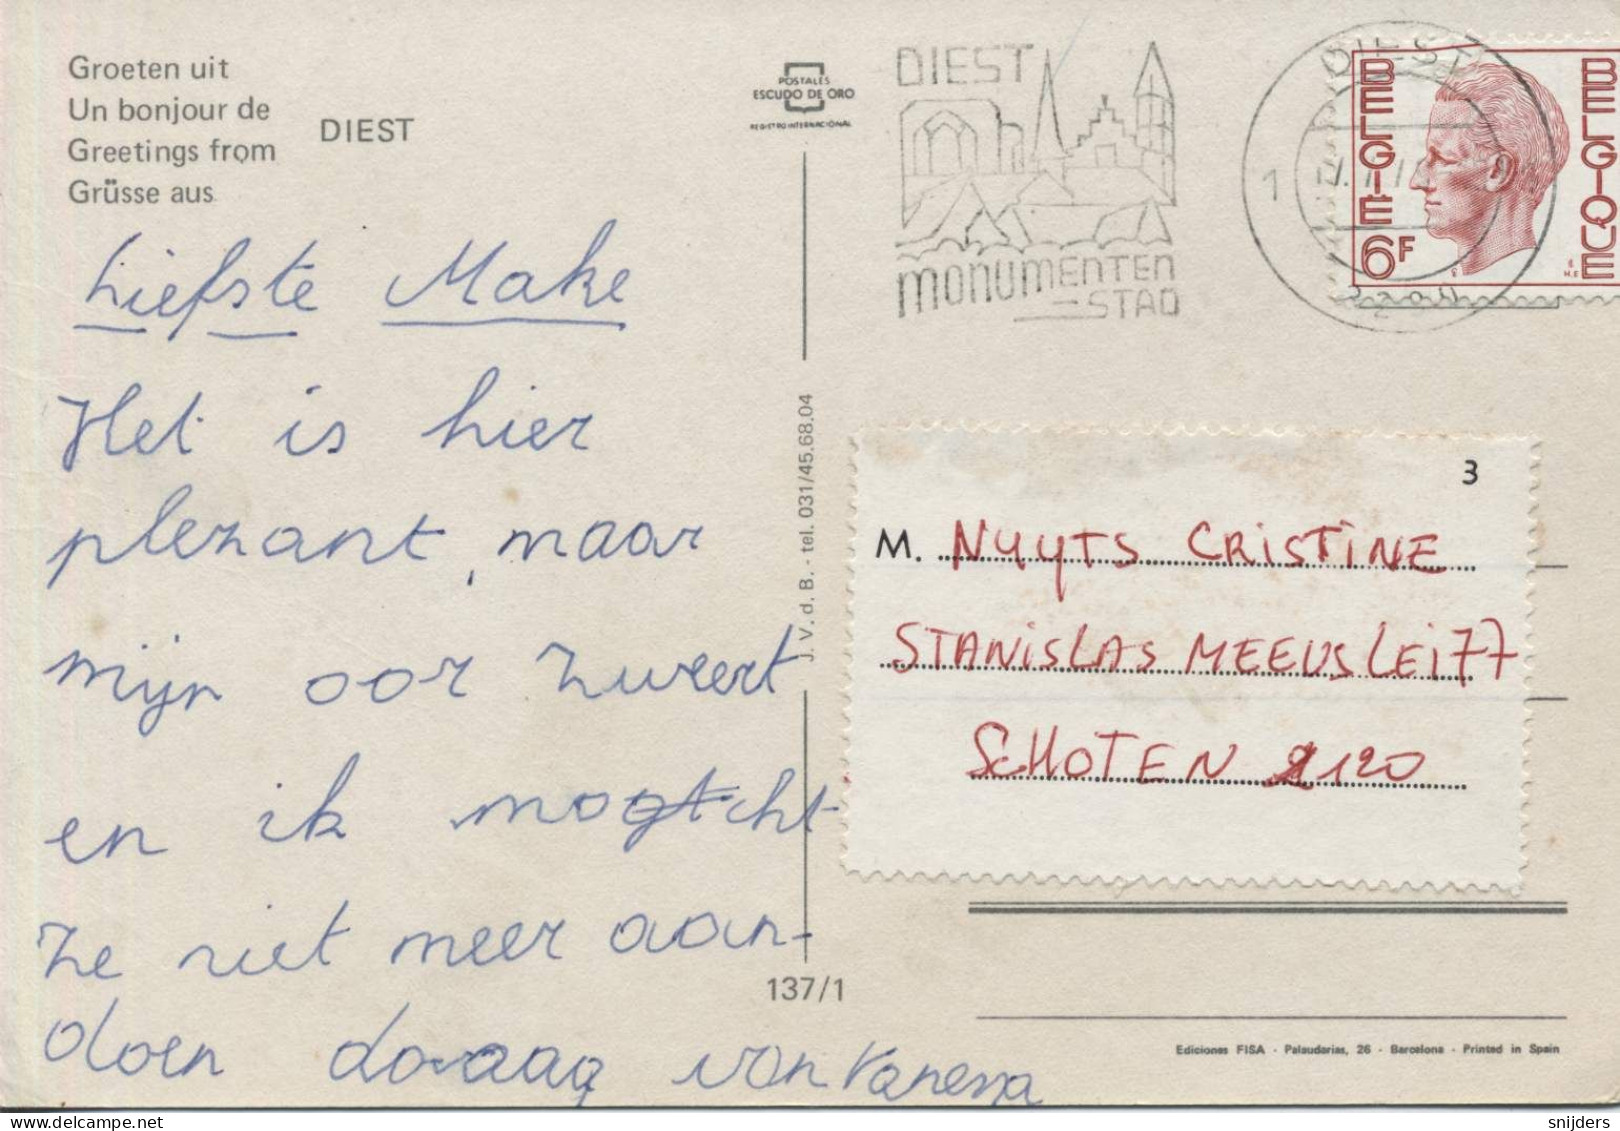 Groeten uit
Un bonjour de
Greetings from
Grüsse aus
DIEST
POSTALES
ESCUDO DE ORO
REGISTRO INTERNACIONAL
DIEST
monumenten
STAD
DIEST
1
BELGIË
BELGIQUE
6F
Liefste Make
Het is hier
plezant, maar
mijn oor zweert
en ik mogtcht
ze niet meer aan-
doen
van Vanessa
J. V. d. B. - tel. 031/45.68.04
137/1
3
M. NUYTS CRISTINE
STANISLAS MEEUSLEI 77
SCHOTEN 2120
Ediciones FISA - Palaudarias, 26 - Barcelona - Printed in Spain
snijders